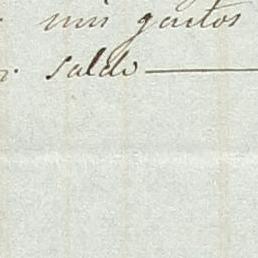 mis gastos
saldo